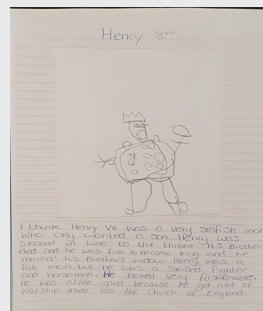 Henry 8th
I think Henry VIII was a very selfish man
who only wanted a son. Henry was
second in line to the throne. His Brother
died and he was first to become king and he
married his Brothers widow. Henry was a
fat man but he was a skilled fighter
and horseman. He looked very fashionable.
He was a little good because he got a lot of
worship made him the Church of England.